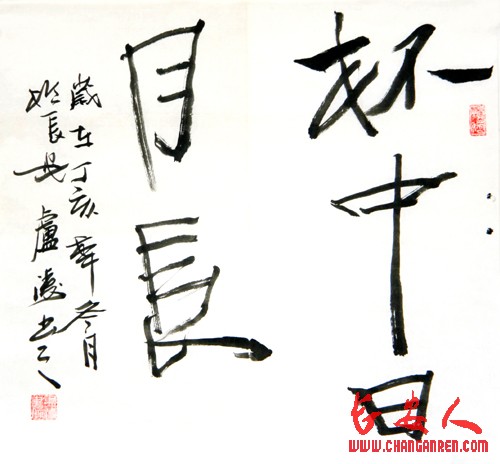 杯中日
月長
歲在丁亥年冬月
於長安盧
書之
长安人
WWW.CHANGANREN.COM